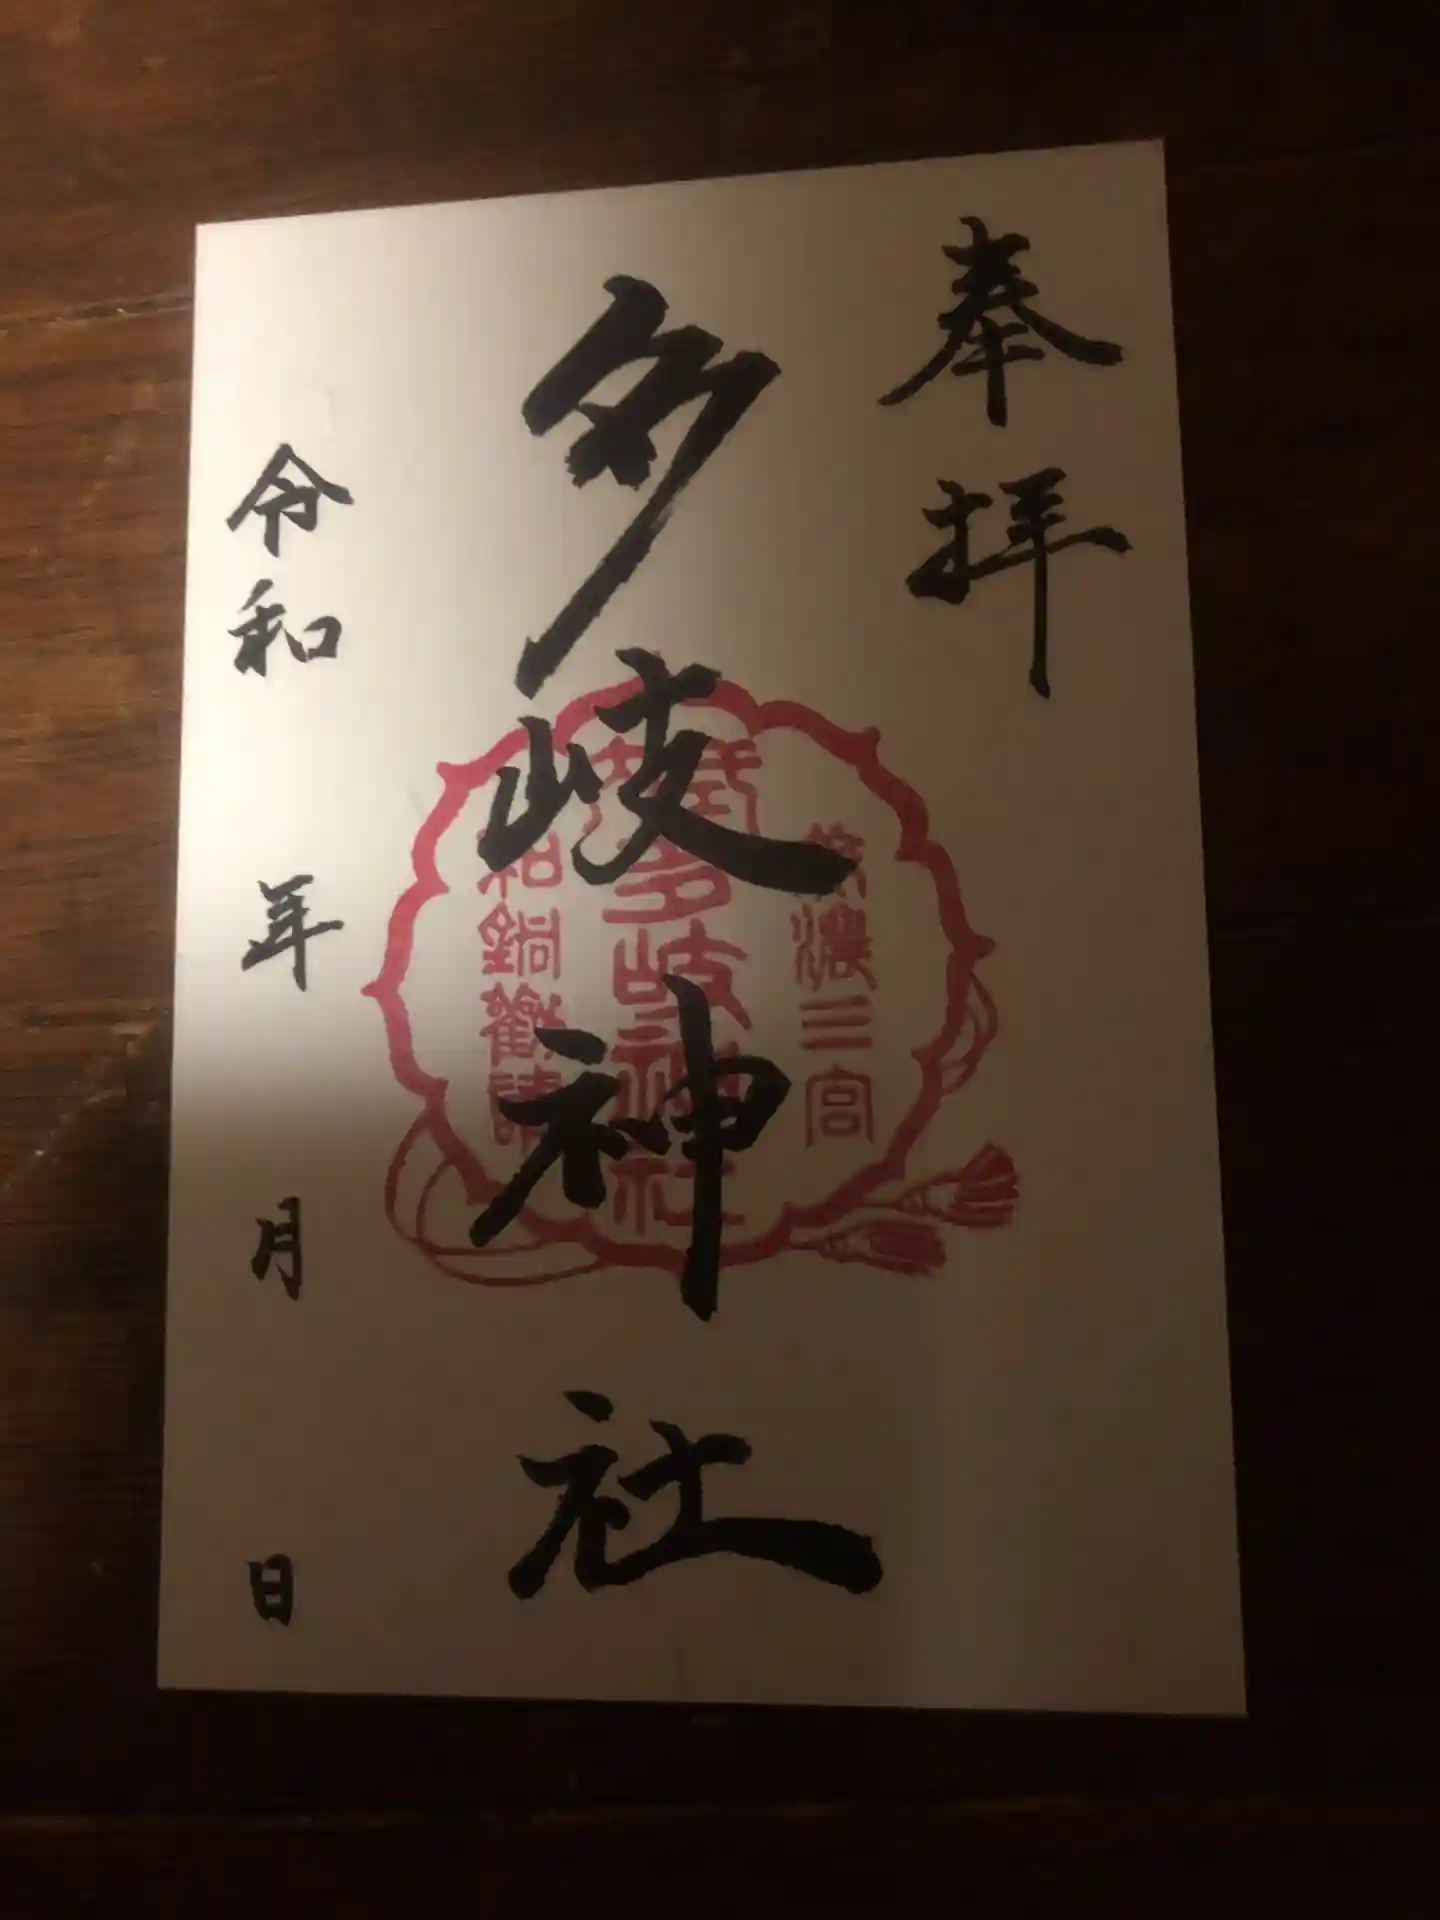 奉拝
多岐神社
濃三宮
多岐神社
和銅勧請
令和 年 月 日